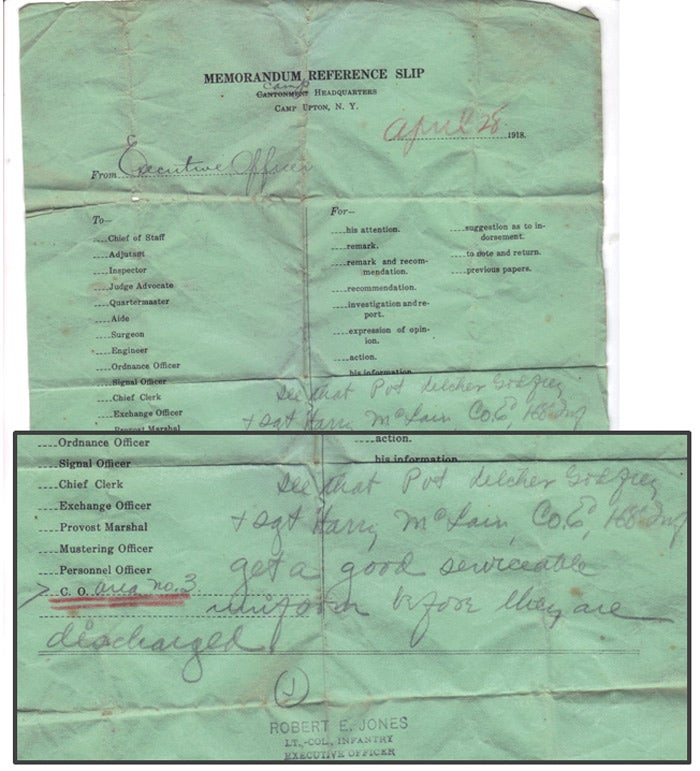 MEMORANDUM REFERENCE SLIP
Camp
CANTONMENT HEADQUARTERS
CAMP UPTON, N. Y.
April 28 1918.
From Executive Officer
To—
Chief of Staff
Adjutant
Inspector
Judge Advocate
Quartermaster
Aide
Surgeon
Engineer
Ordnance Officer
Signal Officer
Chief Clerk
Exchange Officer
Provost Marshal
For—
his attention.
remark.
remark and recom-
mendation.
recommendation.
investigation and re-
port.
expression of opin-
ion.
action.
his information
suggestion as to in-
dorsement.
to note and return.
previous papers.
See that Pvt Godfrey
+ Sgt Harry McLain, Co. E, Inf
Ordnance Officer
Signal Officer
Chief Clerk
Exchange Officer
Provost Marshal
Mustering Officer
Personnel Officer
C. O. area no. 3.
action.
his information
See that Pvt Godfrey
+ Sgt Harry McLain, Co. E, Inf
get a good serviceable
uniform before they are
discharged.
J
ROBERT E. JONES
LT.-COL., INFANTRY
EXECUTIVE OFFICER